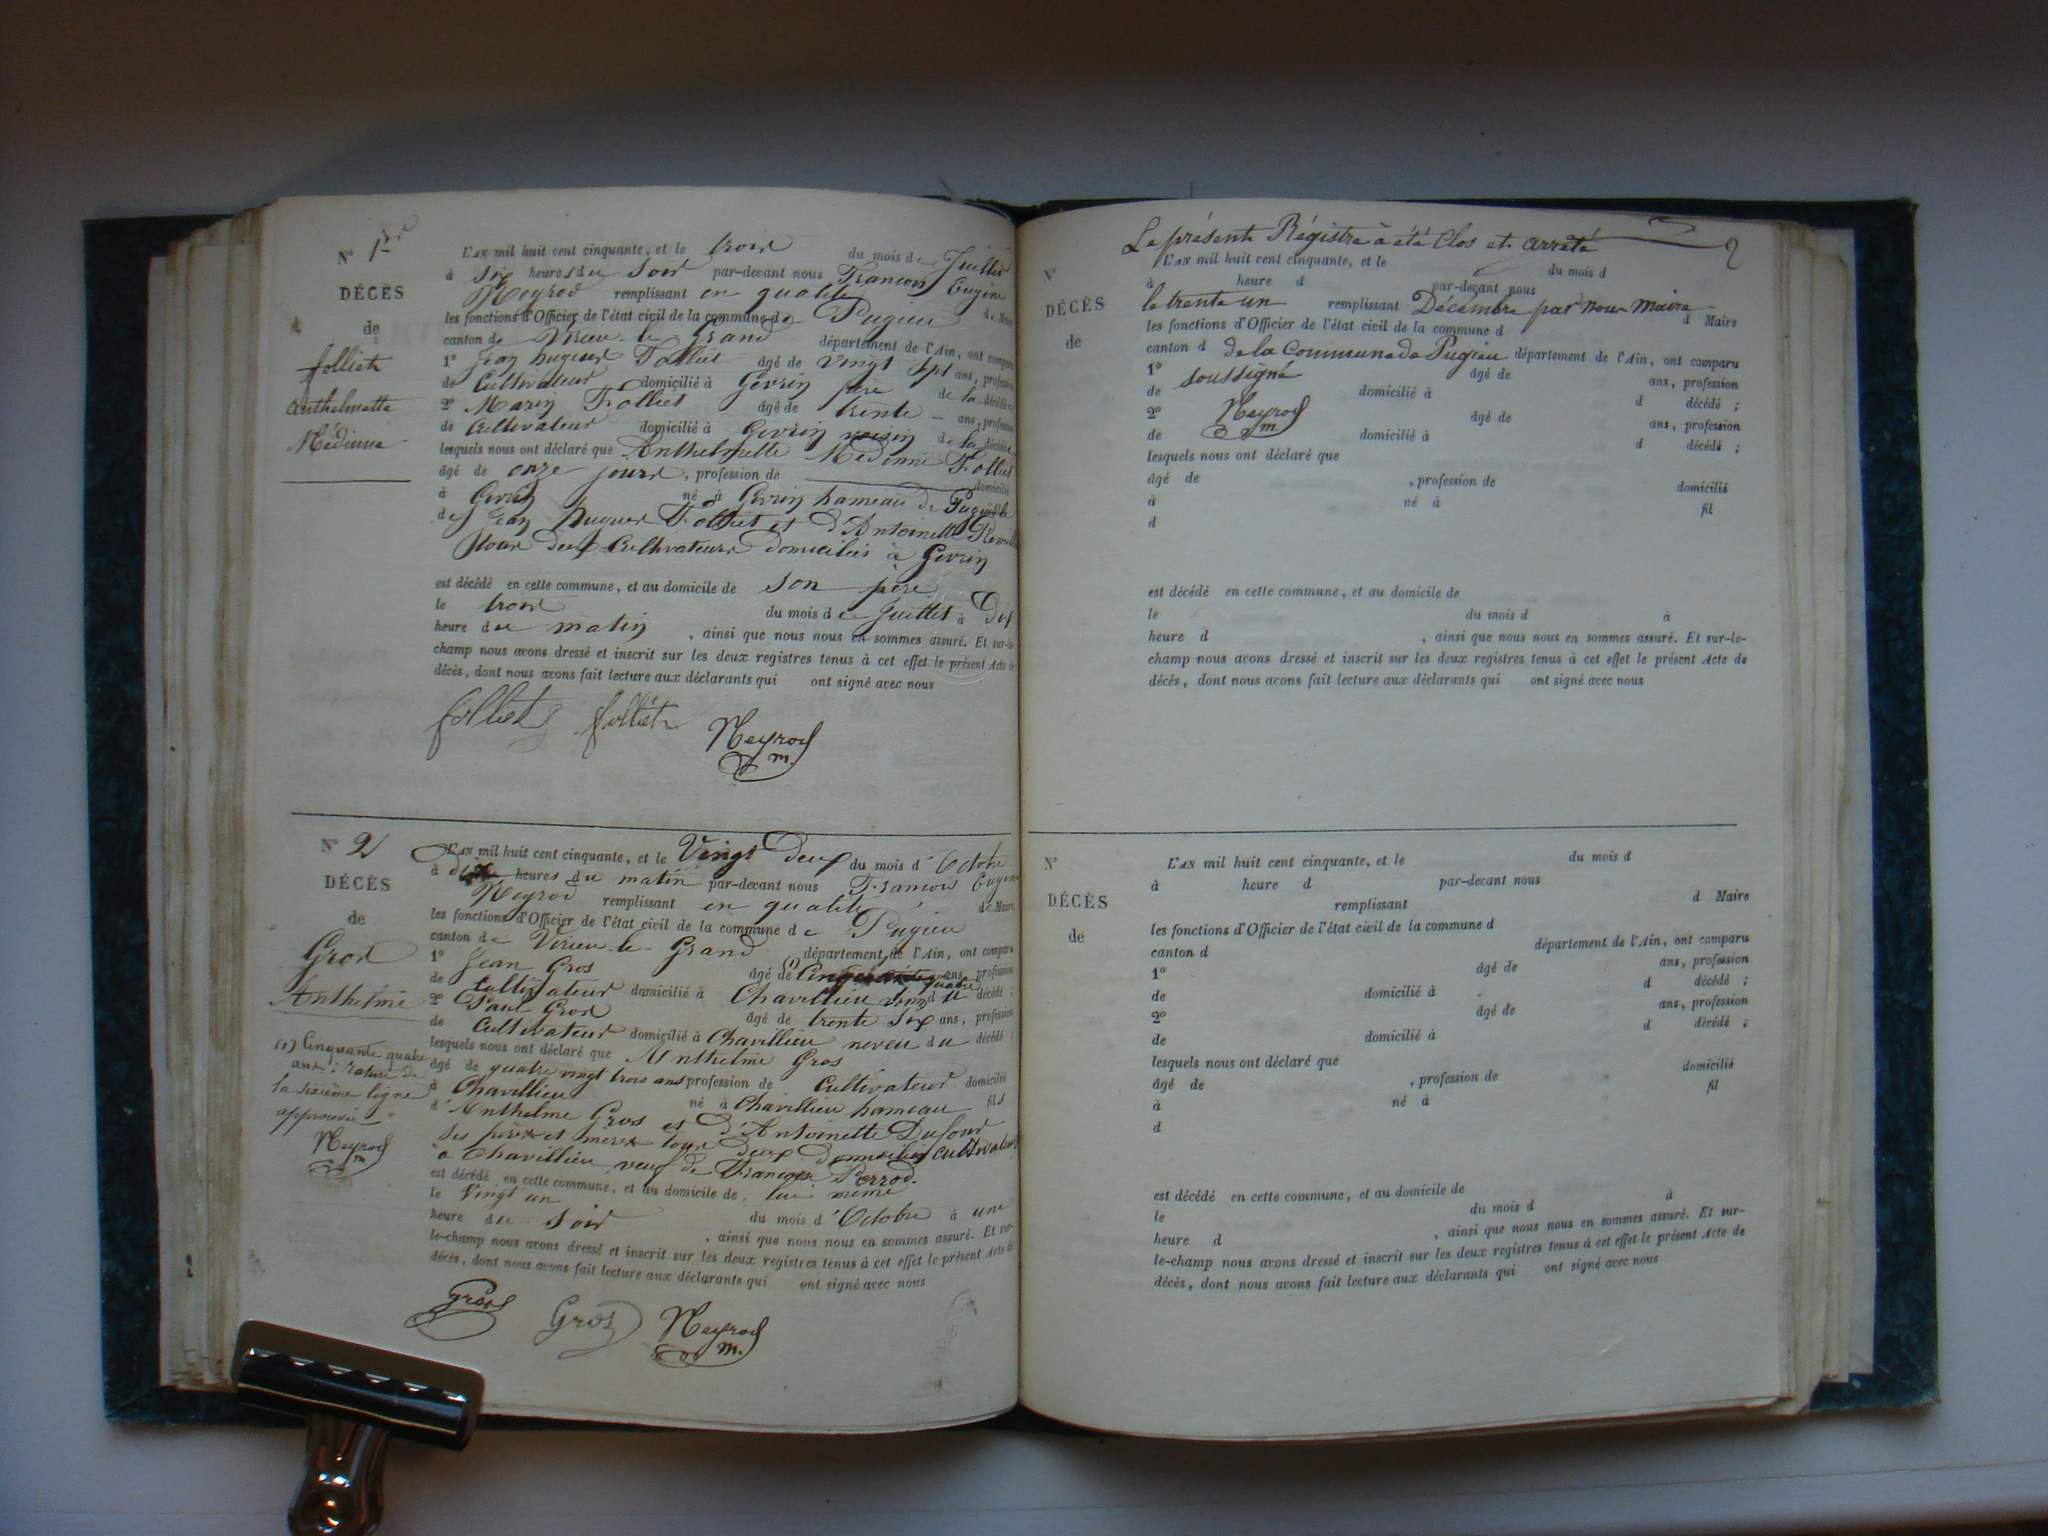 N° 1er
DÉCÈS
de
folliet
anthelmette
Médinne
L'AN mil huit cent cinquante, et le trois du mois de Juillet
à six heures du Soir par-devant nous François Eugène
Neyrod remplissant en qualité de Maire
les fonctions d'Officier de l'état civil de la commune de Pugieu
canton de Virieu-le-Grand département de l'Ain, ont comparu
1° Jean hugues Folliet âgé de vingt Sept ans, profession
de Cultivateur domicilié à Gevrin père de la décédée
2° Marin Folliet âgé de trente - ans, profession
de Cultivateur domicilié à Gevrin voisin de la décédée
lesquels nous ont déclaré que Anthelmette Médinne Folliet
âgé de onze jours, profession de domicilié
à Gevrin né à Gevrin hameau de Pugieu
de Jean hugues Folliet et d'Antoinette
tous deux Cultivateurs domiciliés à Gevrin
est décédé en cette commune, et au domicile de son père
le trois du mois de Juillet à Dix
heure du matin, ainsi que nous nous en sommes assuré. Et sur-le-
champ nous avons dressé et inscrit sur les deux registres tenus à cet effet le présent Acte de
décès, dont nous avons fait lecture aux déclarants qui ont signé avec nous
folliet folliet Neyrod
m.
N° 2
DÉCÈS
de
Gros
Anthelme
(1) Cinquante quatre
ans: rature de
la sixième ligne
approuvée
Neyrod
m
L'AN mil huit cent cinquante, et le Vingt Deux du mois d'Octobre
à dix heures du matin par-devant nous François Eugène
Neyrod remplissant en qualité de Maire
les fonctions d'Officier de l'état civil de la commune de Pugieu
canton de Virieu-le-Grand département de l'Ain, ont comparu
1° Jean Gros âgé de (1) Cinquante quatre ans, profession
de cultivateur domicilié à Chavillieu voisin du décédé;
2° Paul Gros âgé de trente six ans, profession
de Cultivateur domicilié à Chavillieu neveu du décédé;
lesquels nous ont déclaré que Anthelme Gros
âgé de quatre vingt trois ans profession de Cultivateur domicilié
à Chavillieu né à Chavillieu hameau fils
d'Anthelme Gros et d'Antoinette Dufour
ses père et mère tous deux domiciliés cultivateurs
à Chavillieu veuf de Françoise Perrod.
est décédé en cette commune, et au domicile de lui même
le Vingt un du mois d'Octobre à une
heure du Soir, ainsi que nous nous en sommes assuré. Et sur-
le-champ nous avons dressé et inscrit sur les deux registres tenus à cet effet le présent Acte de
décès, dont nous avons fait lecture aux déclarants qui ont signé avec nous
Gros Gros Neyrod
m.
2
Le présent Régistre à été Clos et arrêté
N°
DÉCÈS
de
L'AN mil huit cent cinquante, et le du mois d
à heure d par-devant nous
le trente un remplissant Décembre par nous maire
les fonctions d'Officier de l'état civil de la commune d d Maire
canton d de la Commune de Pugieu département de l'Ain, ont comparu
1° soussigné âgé de ans, profession
de domicilié à d décédé;
2° Neyrod âgé de ans, profession
m
de domicilié à d décédé;
lesquels nous ont déclaré que
âgé de, profession de domicilié
à né à fil
d
est décédé en cette commune, et au domicile de
le du mois d à
heure d, ainsi que nous nous en sommes assuré. Et sur-le-
champ nous avons dressé et inscrit sur les deux registres tenus à cet effet le présent Acte de
décès, dont nous avons fait lecture aux déclarants qui ont signé avec nous
N°
DÉCÈS
de
L'AN mil huit cent cinquante, et le du mois d
à heure d par-devant nous
remplissant d Maire
les fonctions d'Officier de l'état civil de la commune d
canton d département de l'Ain, ont comparu
1° âgé de ans, profession
de domicilié à d décédé;
2° âgé de ans, profession
de domicilié à d décédé;
lesquels nous ont déclaré que
âgé de, profession de domicilié
à né à fil
d
est décédé en cette commune, et au domicile de
le du mois d à
heure d, ainsi que nous nous en sommes assuré. Et sur-
le-champ nous avons dressé et inscrit sur les deux registres tenus à cet effet le présent Acte de
décès, dont nous avons fait lecture aux déclarants qui ont signé avec nous